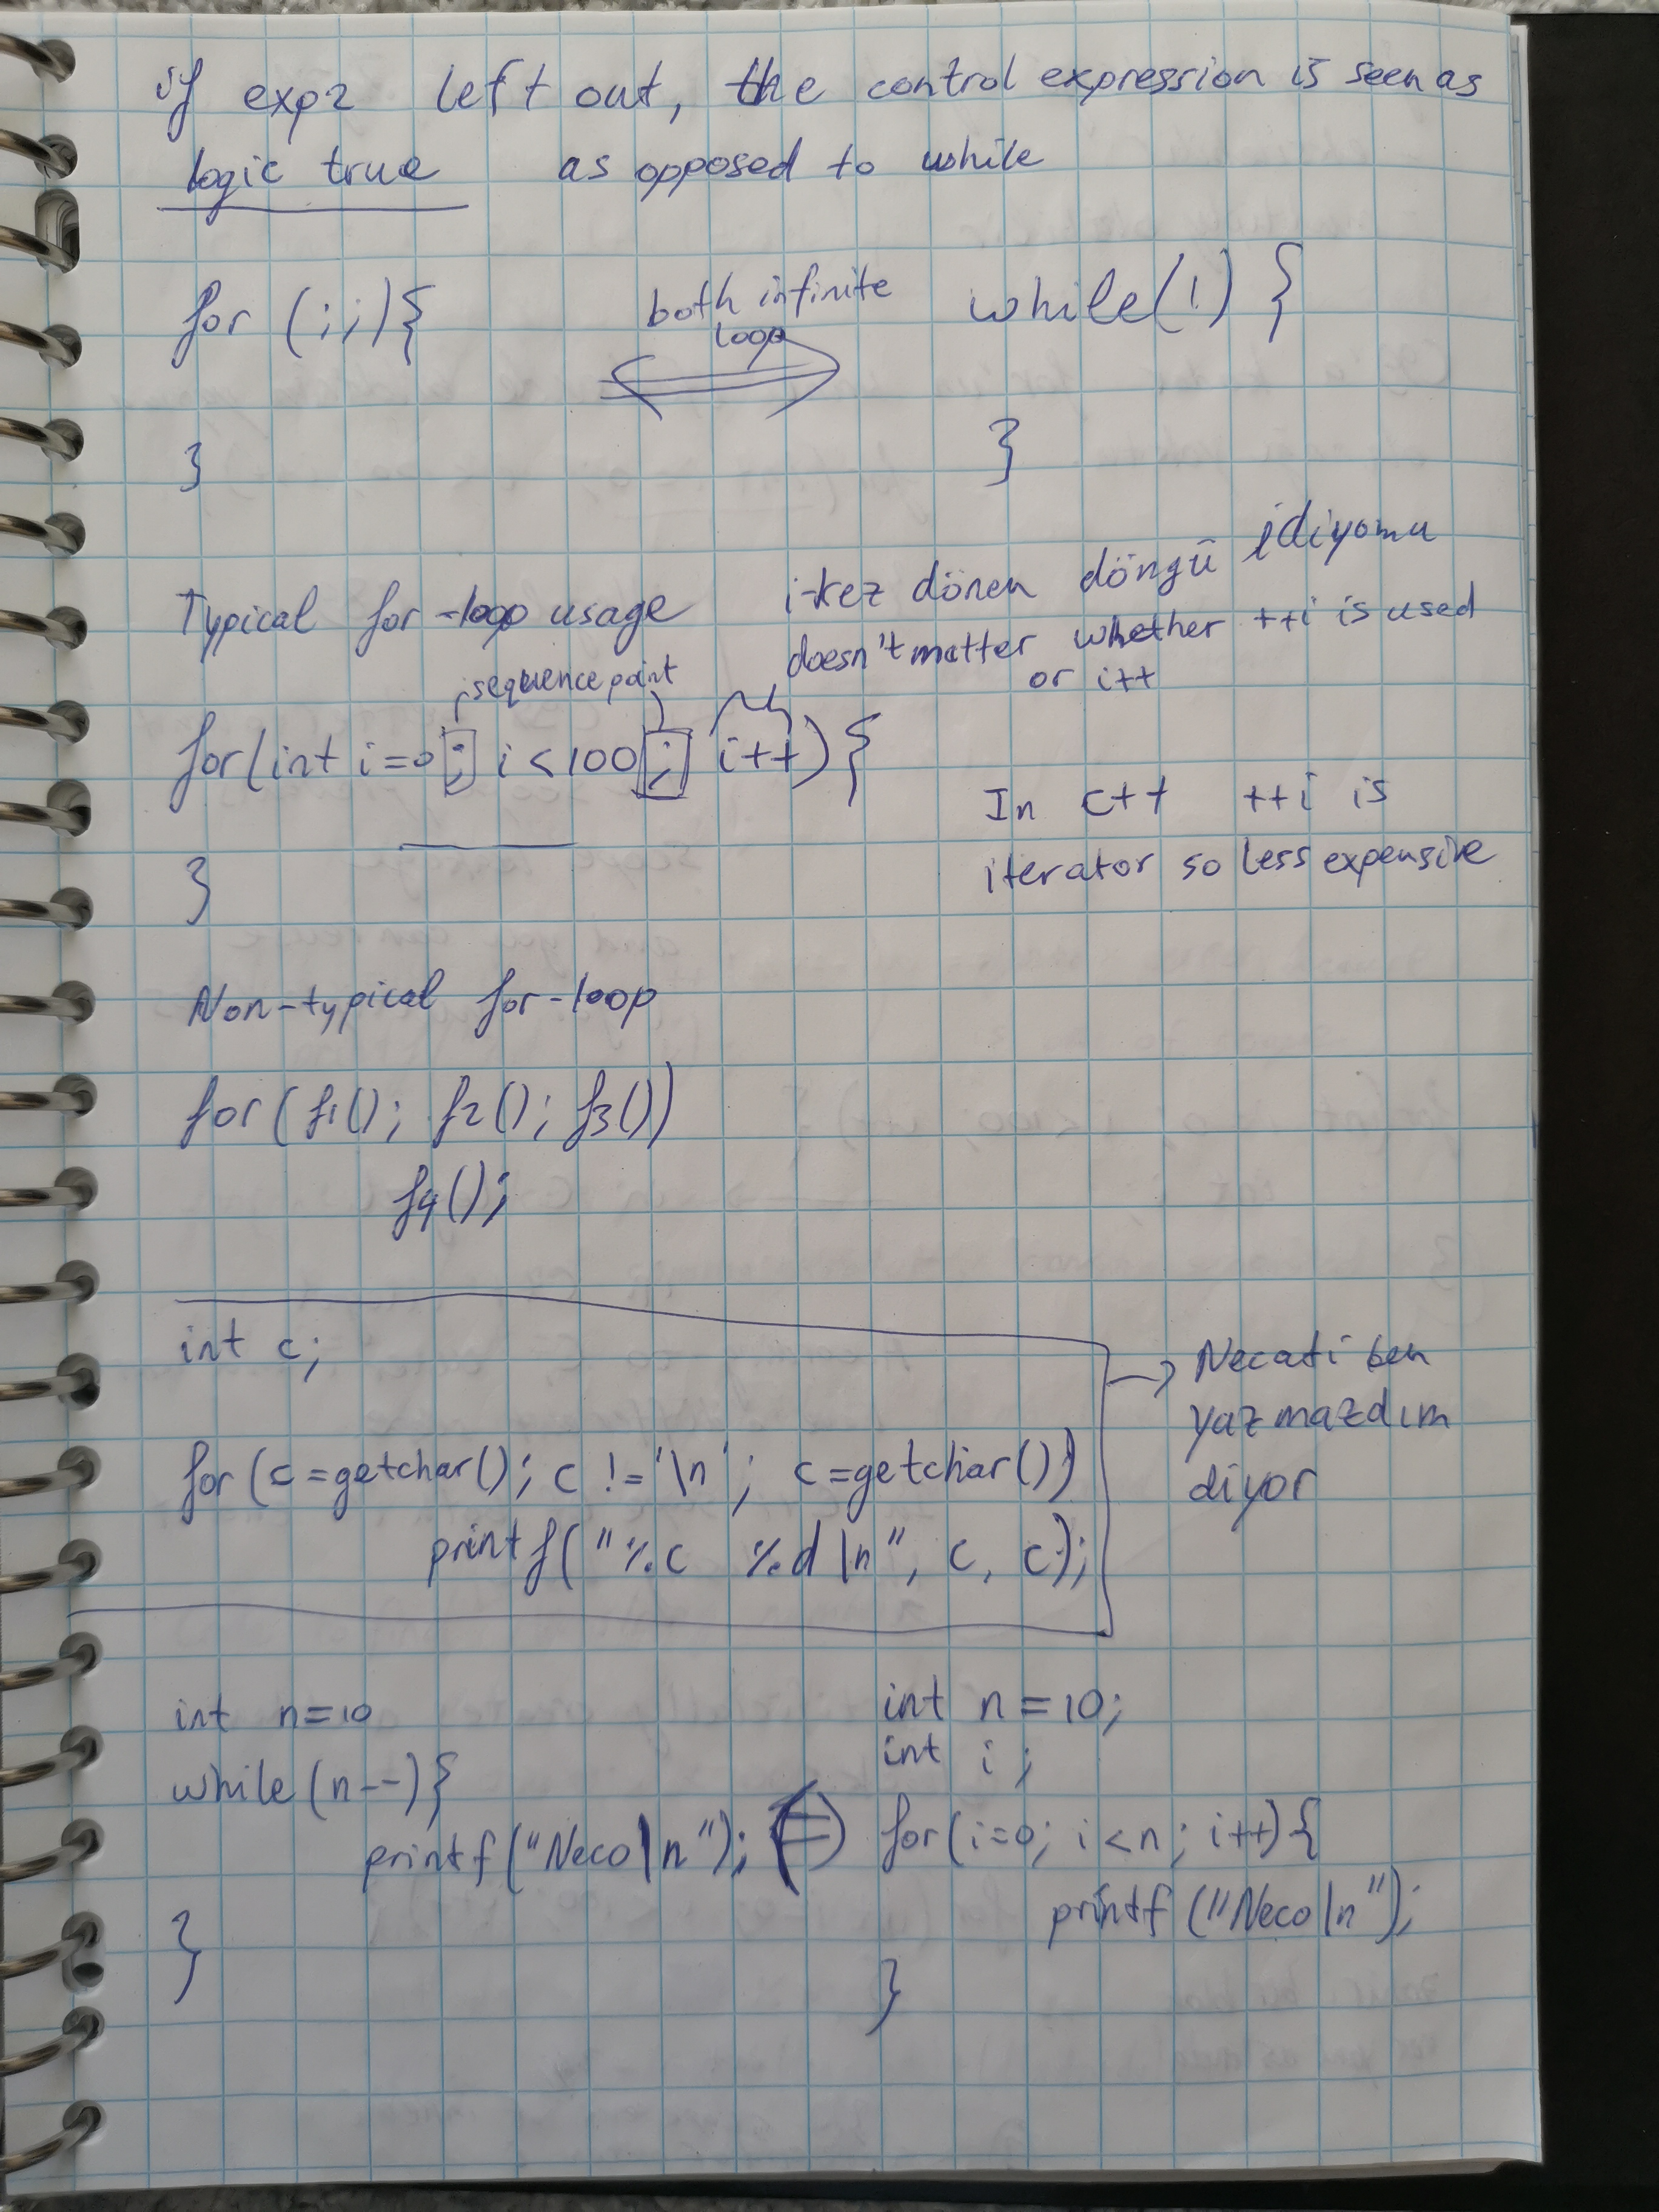 if exp2 left out, the control expression is seen as
logic true as opposed to while
for (;;){ both infinite while(1) {
loop
} }
Typical for-loop usage i-kez dönen döngü idiyomu
doesn't matter whether ++i is used
or i++
sequence point
for(int i=0; i<100; i++){
In c++ ++i is
iterator so less expensive
}
Non-typical for-loop
for(f1(); f2(); f3())
f4();
int c;
Necati ben
yazmazdım
diyor
for(c=getchar(); c != '\n'; c=getchar())
printf("%c %d\n", c, c);
int n=10 int n=10;
int i;
while(n--){
printf("Neco\n"); for(i=0; i<n; i++){
printf("Neco\n");
}
}